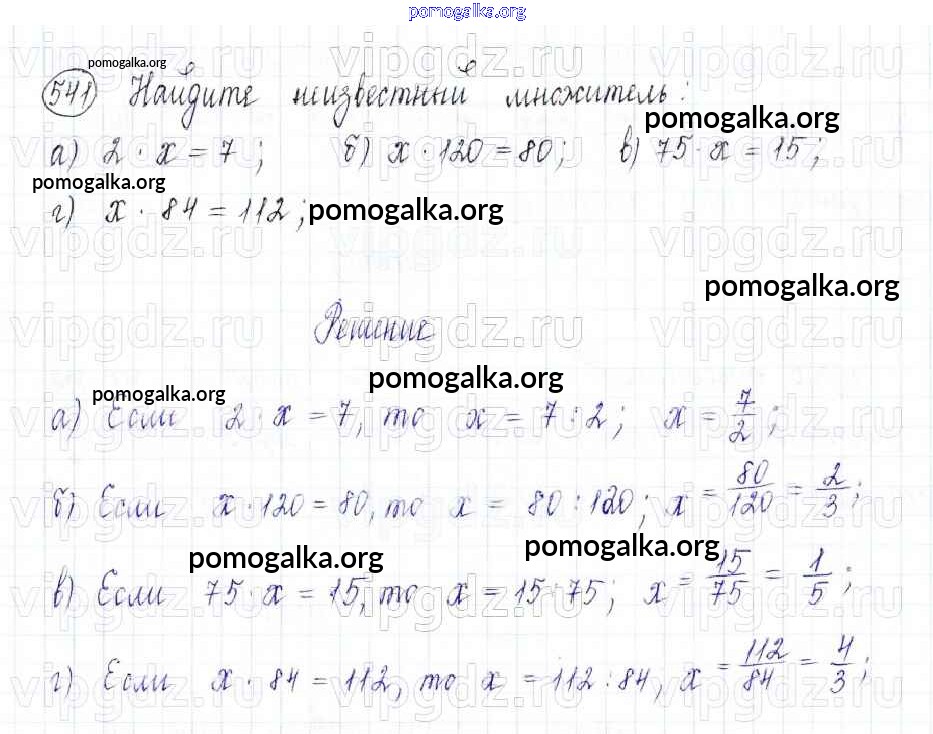 pomogalka.org
pomogalka.org
541 Найдите неизвестный множитель:
pomogalka.org
а) 2 · x = 7; б) x · 120 = 80; в) 75 · x = 15;
pomogalka.org
г) x · 84 = 112;
pomogalka.org
pomogalka.org
Решение
pomogalka.org
pomogalka.org
а) Если 2 · x = 7, то x = 7 : 2; x = 7/2;
б) Если x · 120 = 80, то x = 80 : 120; x = 80/120 = 2/3;
pomogalka.org pomogalka.org
в) Если 75 · x = 15, то x = 15 : 75; x = 15/75 = 1/5;
г) Если x · 84 = 112, то x = 112 : 84, x = 112/84 = 4/3;
vipgdz.ru vipgdz.ru vipgdz.ru